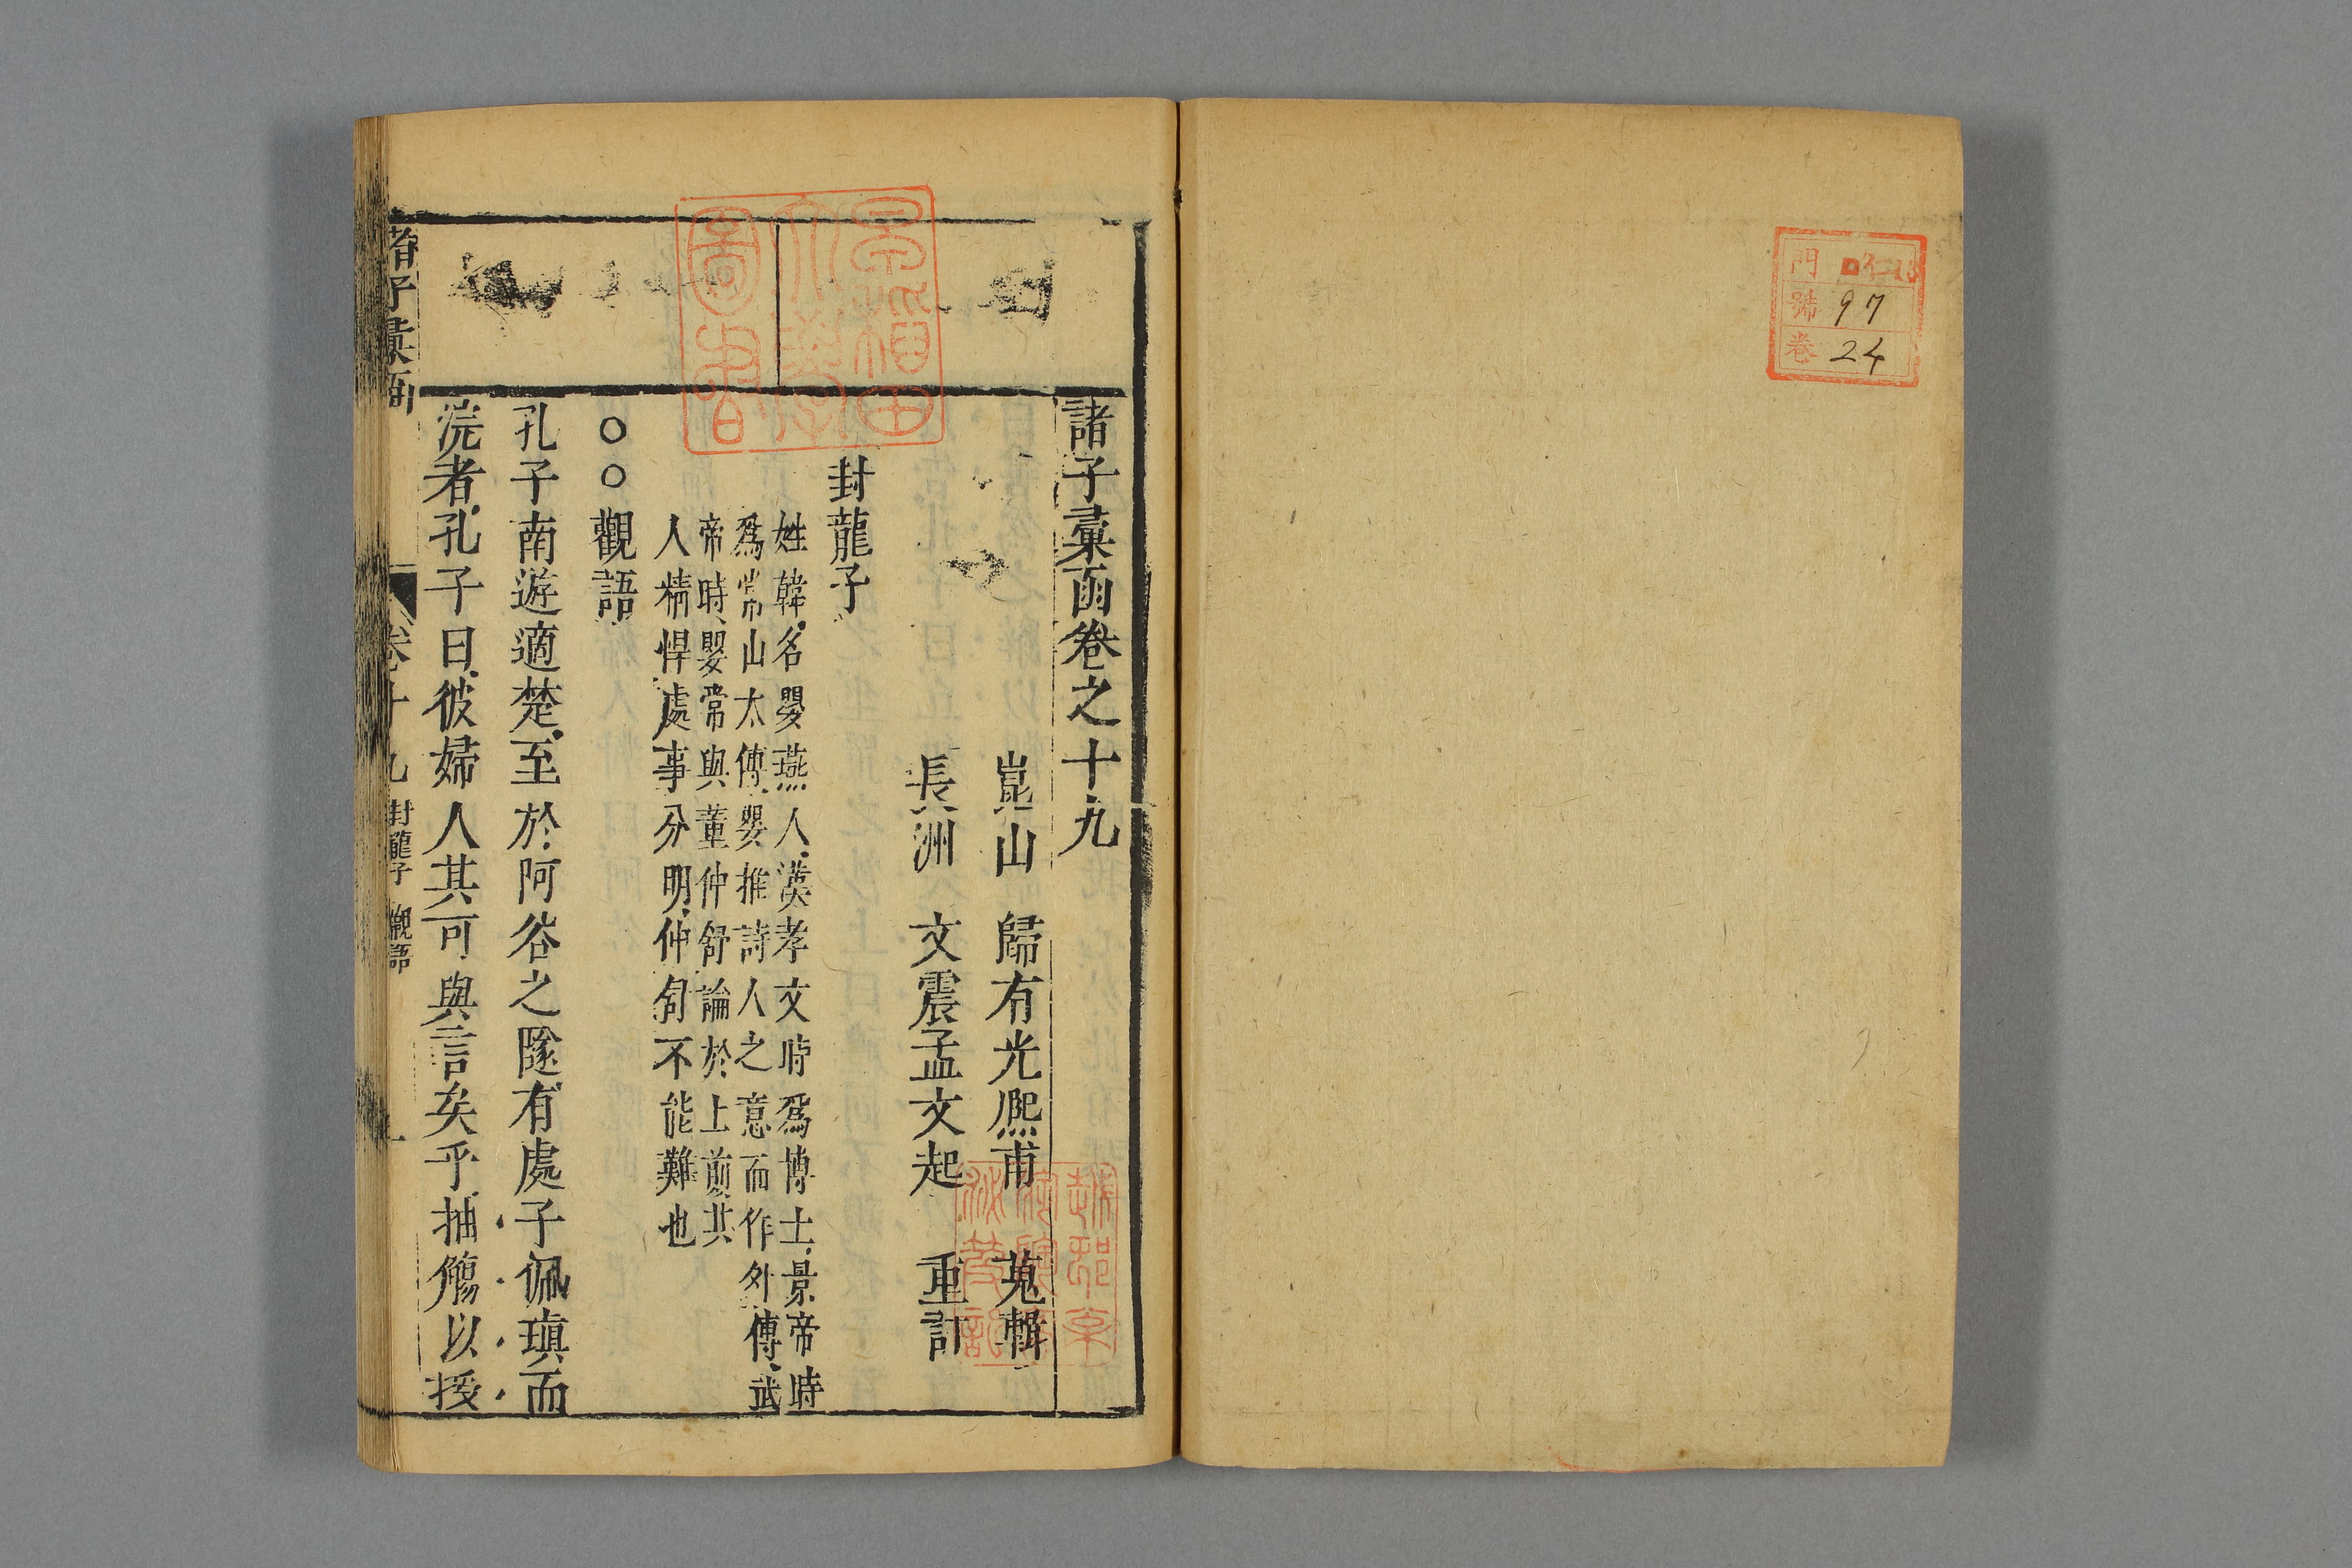 門 ロ仁13
號 97
卷 24
早稲田
大學
圖書
諸子彙函卷之十九
崑山 歸有光熈甫 蒐輯
長洲 文震孟文起 重訂
封龍子
姓韓名嬰燕人漢孝文時爲博士景帝時
爲常山太傅嬰推詩人之意而作外傳武
帝時嬰常與董仲舒論於上前其
人精悍處事分明仲舒不能難也
○○觀語
孔子南遊適楚至於阿谷之隧有處子佩瑱而
浣者孔子曰彼婦人其可與言矣乎抽觴以授
諸子彙函 卷十九 封龍子 觀語 一